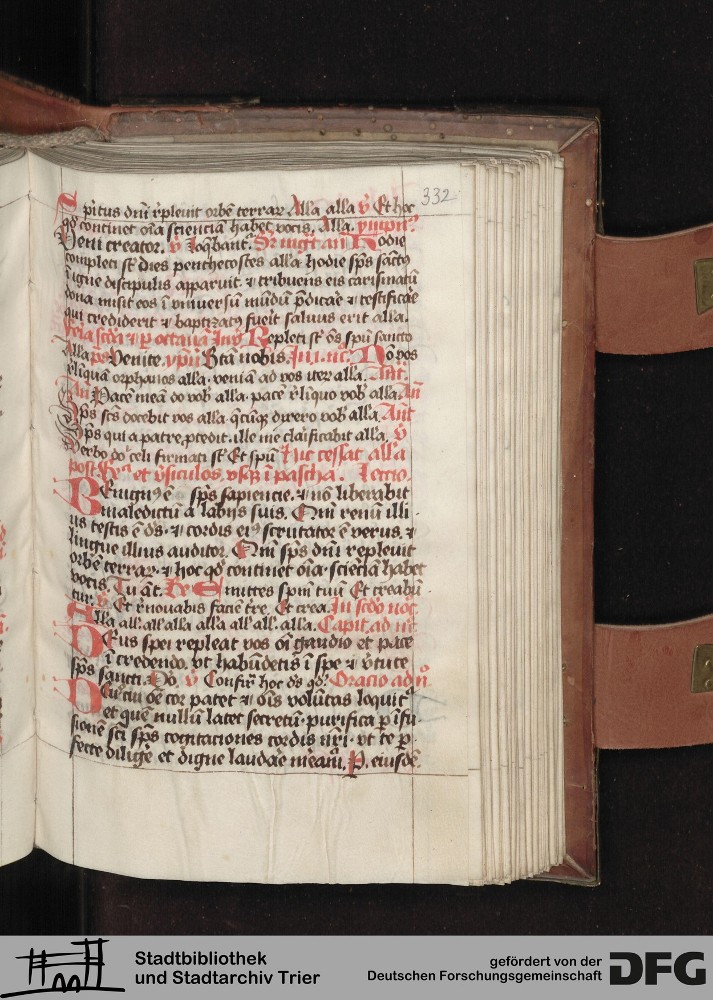 332
Spiritus dni repleuit orbē terrar Alla alla v Et hoc
qd continet oīa scienciā habet vocis, Alla. ympn9
Veni creator. v Loqbant. Sr mgt an Hodie
completi st dies penthecostes alla hodie sps sāctus
ī igne discipulis apparuit. et tribuens eis carismatū
dona misit eos ī vniuersū mūdū pdicare et testificare
qui crediderit et baptizatus fuerit saluus erit alla.
Repleti st os spū sancto
Alla ps Venite. ymn Btā nobis. In i. nc. Nō vos
reliquā orphanos alla. veniā ad vos iter alla. Ant.
An Pacē meā do vob alla. pacē reliquo vob alla. Ān
Sps scs docebit vos alla qcūq dixero vob alla. Ant
Sps qui a patre pcedit. ille me clarificabit alla. v
Verbo do celi firmati st Et spū hic cessat alla
post et vsiculos. vsq ī pascha. Lectio
Benignus ē sps sapiencie. et nō liberabit
maledictū a labijs suis. Qm renū illi
us testis ē ds. et cordis eius scrutator ē verus. et
lingue illius auditor. Qm sps dni repleuit
orbē terrar. et hoc qd continet oīa. scienciā habet
vocis. Tu āt. Re Emittes spm tuū Et creabū
tur. v Et renouabis faciē tre. Et crea. In scdo noc.
Alla all. all. alla alla all. all. alla. Capit. ad
Deus spei repleat vos oī gaudio et pace
ī credendo. vt habūdetis ī spe et vtute
sps sancti. Do. v Confir hoc ds qd. Oracio ad
Deus cui oē cor patet et oīs volūtas loquit
et quē nullū latet secretū. purifica p īfu
sionē sci sps cogitaciones cordis nri. vt te p
fecte diligē et digne laudare mēam. P. eiusdē
Stadtbibliothek
und Stadtarchiv Trier
gefördert von der
Deutschen Forschungsgemeinschaft
DFG